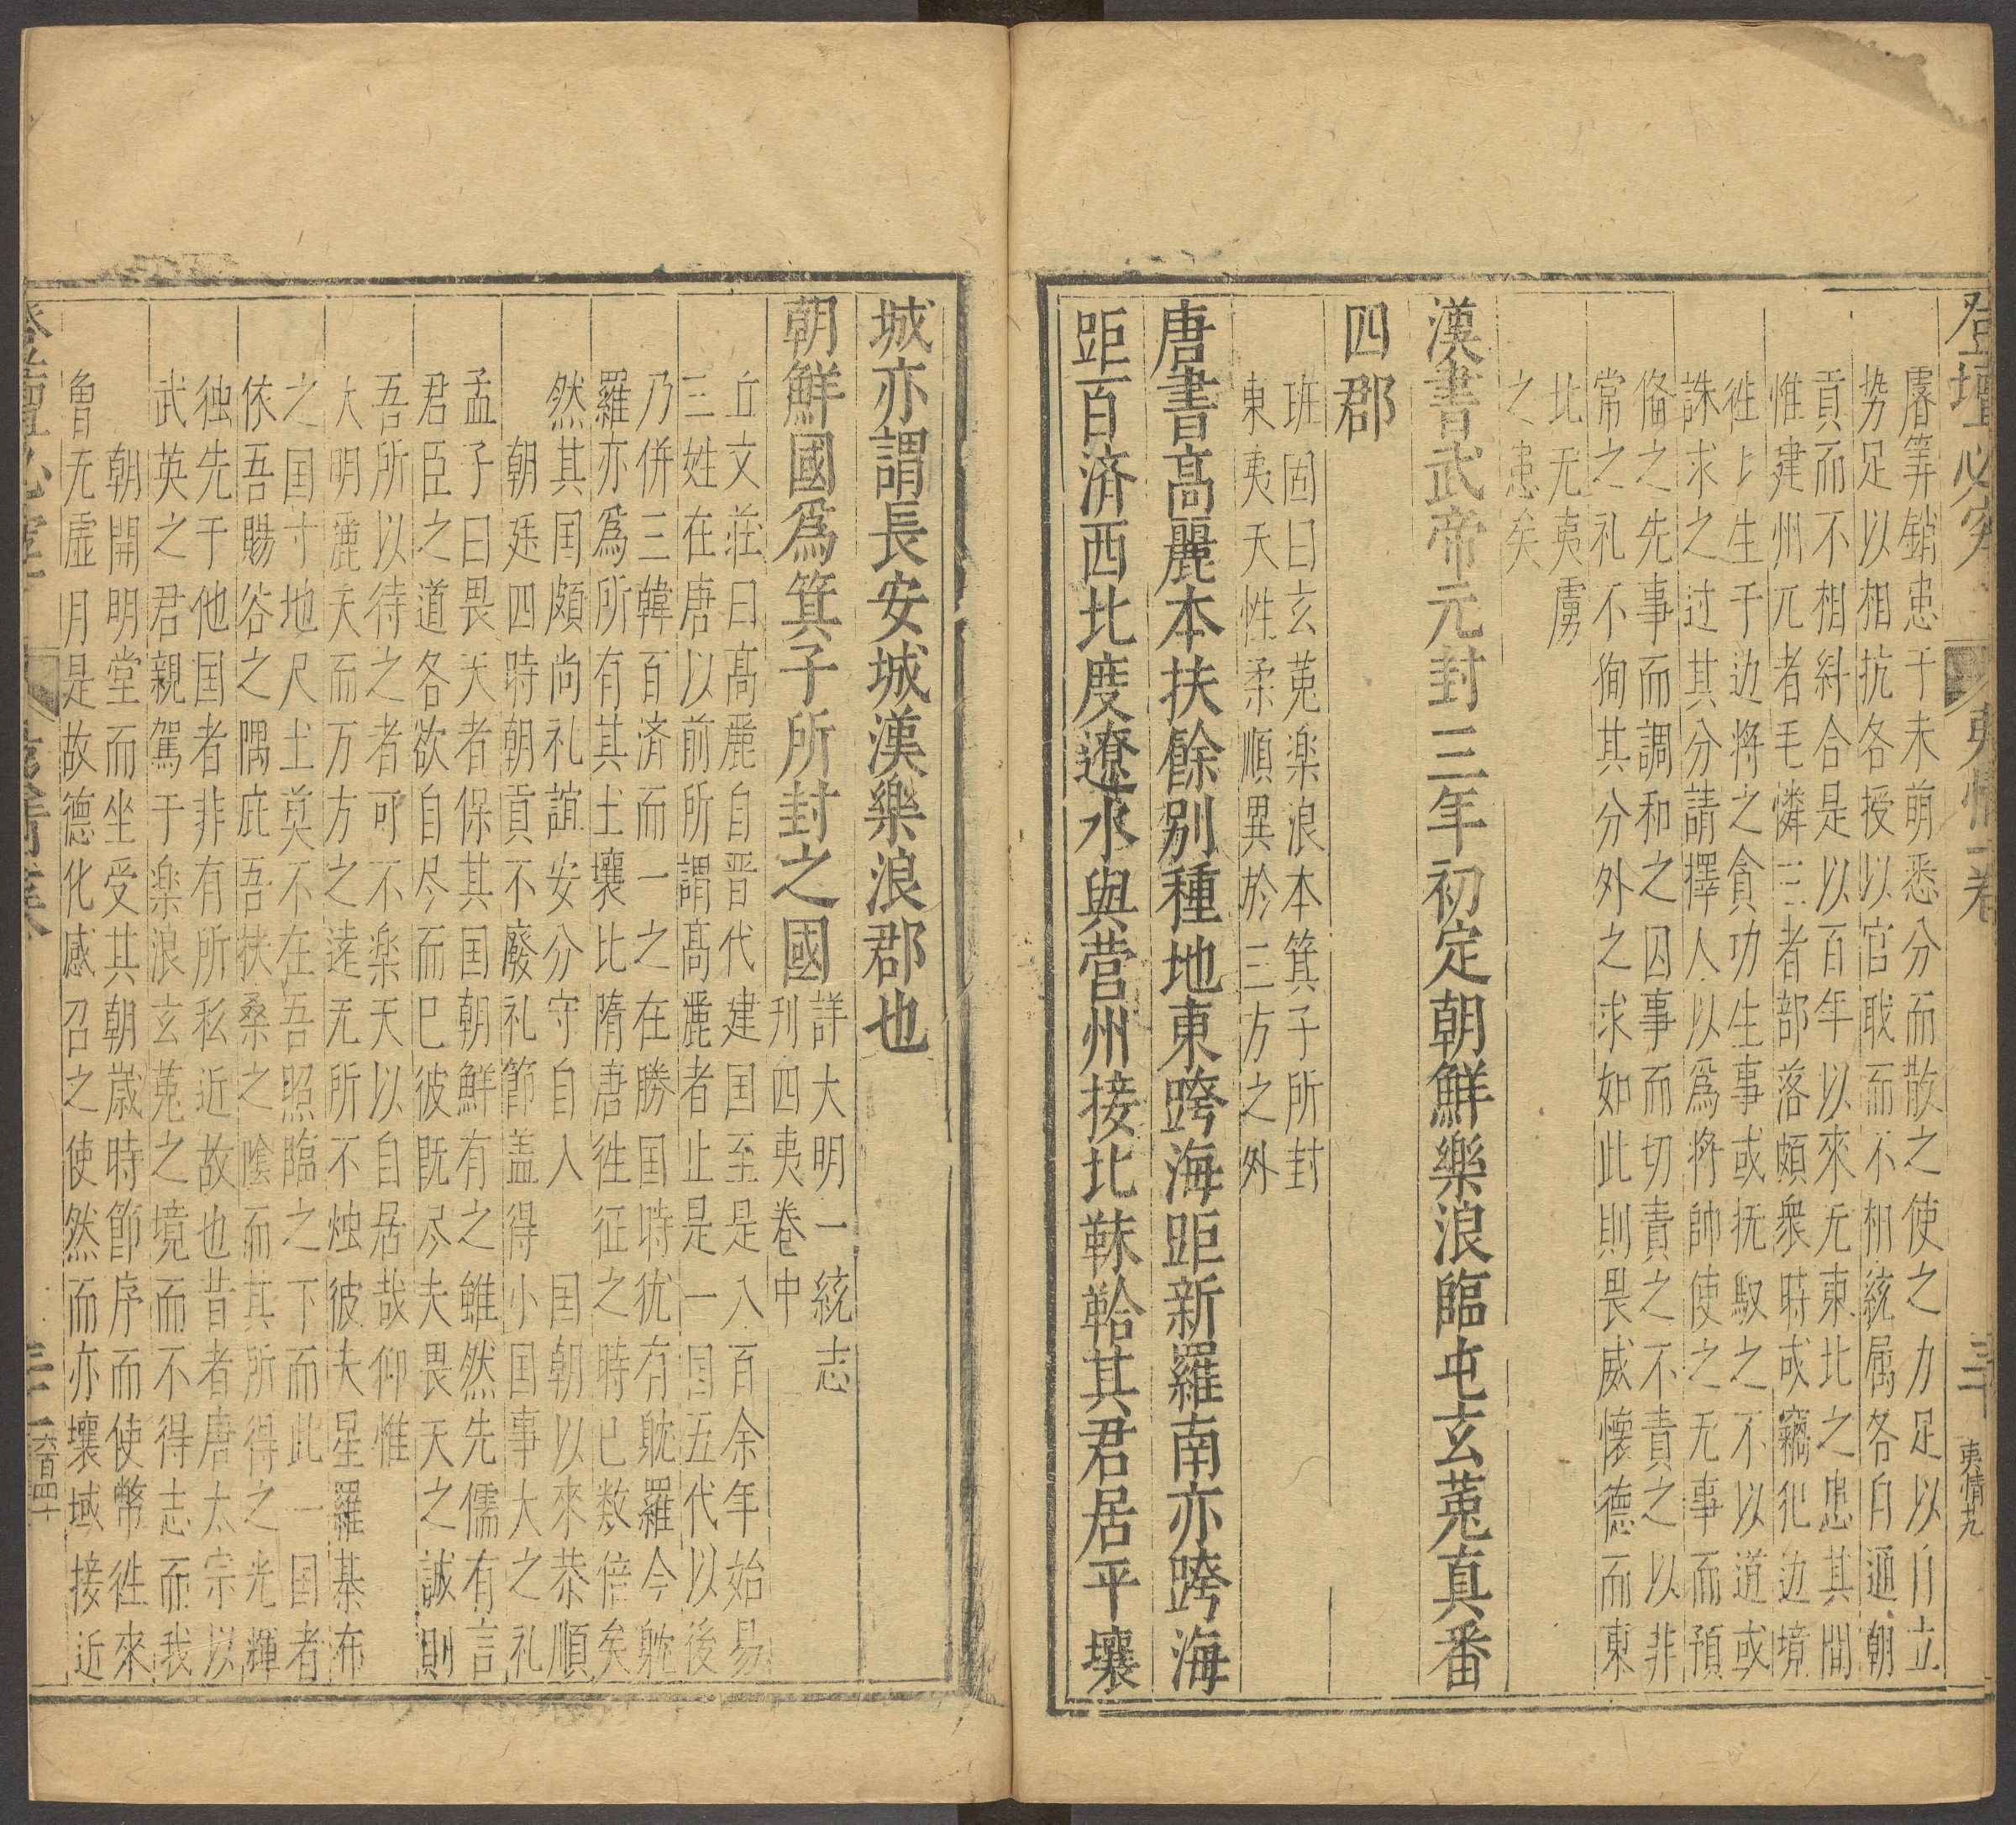 登壇必究
夷情一卷
三十
夷情九
睿筭銷患于未萌悉分而散之使之力足以自立
势足以相抗各授以官职而不相統属各自通朝
貢而不相糾合是以百年以來无東北之患其間
惟建州兀者毛憐三者部落頗衆時或竊犯边境
徃〻生于边将之貪功生事或抚馭之不以道或
誅求之过其分請擇人以爲将帥使之无事而預
俻之先事而調和之囚事而切責之不責之以非
常之礼不徇其分外之求如此則畏威懷德而東
北无夷虜
之患矣
漢書武帝元封三年初定朝鮮樂浪臨屯玄菟真番
四郡
班固曰玄菟楽浪本箕子所封
東夷天性柔順異於三方之外
唐書高麗本扶餘别種地東跨海距新羅南亦跨海
距百済西北度遼水與营州接北靺鞨其君居平壤
城亦謂長安城漢樂浪郡也
朝鮮國爲箕子所封之國
詳大明一統志
刋四夷卷中
丘文莊曰髙麗自晋代建国至是八百余年始易
三姓在唐以前所謂髙麗者止是一国五代以後
乃併三韓百済而一之在勝国時犹有耽羅今躭
羅亦爲所有其土壤比隋唐徃征之時已数倍矣
然其国頗尚礼誼安分守自人　国朝以來恭順
朝廷四時朝貢不廢礼節盖得小国事大之礼
孟子曰畏天者保其国朝鮮有之雖然先儒有言
君臣之道各欲自尽而已彼既尽夫畏天之誠則
吾所以待之者可不楽天以自居哉仰惟
大明麗天而万方之逺无所不烛彼夫星羅棊布
之国寸地尺土莫不在吾照臨之下而此一国者
依吾暘谷之隅庇吾扶桑之陰而其所得之光輝
独先于他国者非有所私近故也昔者唐太宗以
武英之君親駕于楽浪玄菟之境而不得志而我
朝開明堂而坐受其朝歲時節序而使幣徃來
魯无虛月是故德化感召之使然而亦壤域接近
登壇必究
夷情一卷
三十一
六百四十